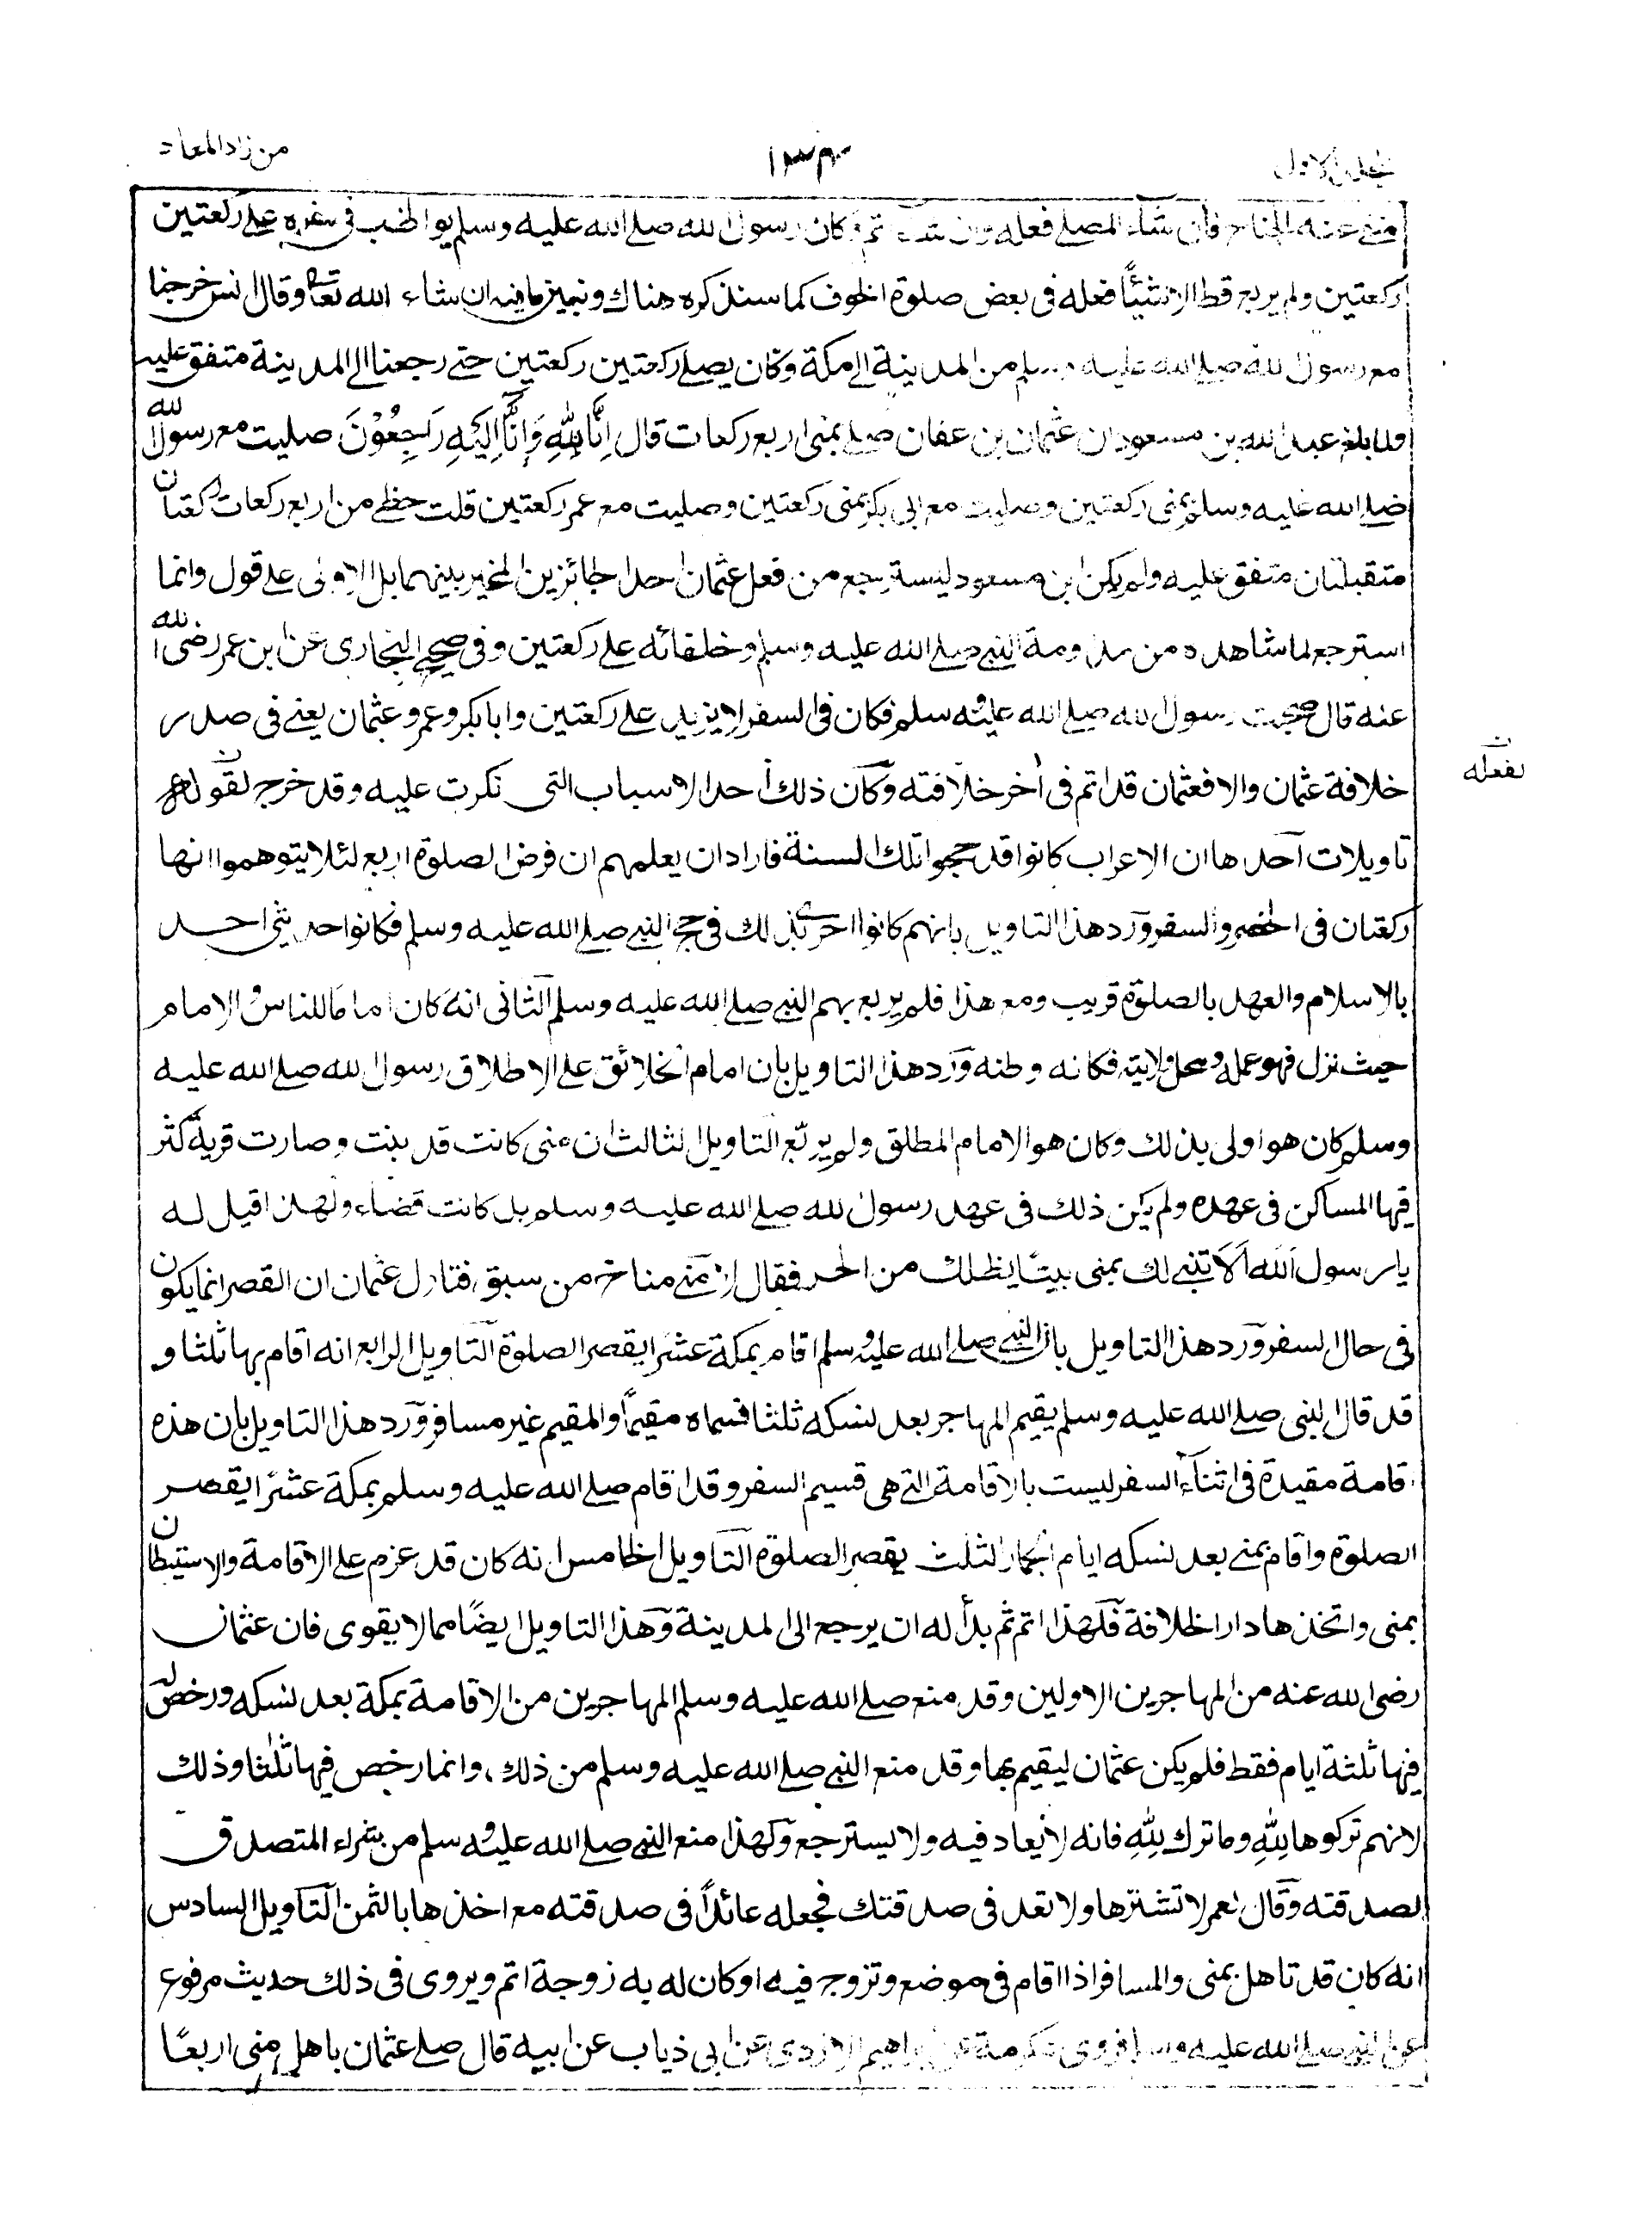 من زاد المعاد ١٣٤ المجلد الاول
منفي عنه الجناح فان شاء المصلے فعله وان شاء اتم وكان رسول الله صلے الله عليه وسلم يواظب فى سفره علے ركعتين
ركعتين ولم يربع قط الا شيئاً فعله فى بعض صلوة الخوف كما سنذكره هناك ونبين ما فيه ان شاء الله تعالى وقال انس خرجنا
مع رسول الله صلے الله عليه وسلم من المدينة الے مكة وكان يصلے ركعتين ركعتين حتے رجعنا الے المدينة متفق عليه
ولما بلغ عبد الله بن مسعود ان عثمان بن عفان صلے بمنى اربع ركعات قال اِنَّا لِلّٰهِ وَاِنَّا اِلَيْهِ رَاجِعُوْنَ صليت مع رسول الله
صلے الله عليه وسلم بمنى ركعتين وصليت مع ابى بكر بمنى ركعتين وصليت مع عمر ركعتين قلت حظے من اربع ركعات ركعتان
متقبلتان متفق عليه ولم يكن ابن مسعود ليسترجع من فعل عثمان احد الجائزين المخير بينهما بل الاولى على قول وانما
استرجع لما شاهده من مداومة النبي صلے الله عليه وسلم وخلفائه علے ركعتين وفى صحيح البخارى عن ابن عمر رضى الله
عنه قال صحبت رسول الله صلے الله عليه وسلم فكان فى السفر لا يزيد علے ركعتين وابا بكر وعمر وعثمان يعنے فى صدر
خلافة عثمان والا فعثمان قد اتم فى اٰخر خلافته وكان ذلك احد الاسباب التى نكرت عليه وقد خرج لقوله
لفعله
تاويلات احدها ان الاعراب كانوا قد حجوا تلك السنة فاراد ان يعلمهم ان فرض الصلوة اربع لئلا يتوهموا انها
ركعتان فى الحضر والسفر ورد هذا التاويل بانهم كانوا احرى بذلك فى حج النبي صلے الله عليه وسلم فكانوا حديثى احد
بالاسلام والعهد بالصلوة قريب ومع هذا فلم يربع بهم النبي صلے الله عليه وسلم الثانى انه كان اماما للناس والامام
حيث نزل فهو عمله ومحل ولايته فكانه وطنه ورد هذا التاويل بان امام الخلائق علے الاطلاق رسول الله صلے الله عليه
وسلم كان هو اولى بذلك وكان هو الامام المطلق ولم يربّع التاويل الثالث ان منى كانت قد بنت وصارت قرية كثر
فيها المساكن فى عهده ولم يكن ذلك فى عهد رسول الله صلے الله عليه وسلم بل كانت فضاء ولهذا قيل له
يا رسول الله الا تبني لك بمنى بيتا يظلك من الحر فقال لا منے مناخ من سبق فتاول عثمان ان القصر انما يكون
فى حال السفر ورد هذا التاويل بان النبي صلے الله عليه وسلم اقام بمكة عشرا يقصر الصلوة التاويل الرابع انه اقام بها ثلثا و
قد قال النبى صلے الله عليه وسلم يقيم المهاجر بعد نسكه ثلثا فسماه مقيماً والمقيم غير مسافر ورد هذا التاويل بان هذه
اقامة مقيدة فى اثناء السفر ليست بالاقامة التے هى قسيم السفر وقد اقام صلے الله عليه وسلم بمكة عشرًا يقصر
الصلوة واقام بمنے بعد نسكه ايام الجمار الثلث يقصر الصلوة التاويل الخامس انه كان قد عزم علے الاقامة والاستيطان
بمنى واتخذها دار الخلافة فلهذا اتم ثم بدأ له ان يرجع الى المدينة وهذا التاويل ايضًا مما لا يقوى فان عثمان
رضى الله عنه من المهاجرين الاولين وقد منع صلے الله عليه وسلم المهاجرين من الاقامة بمكة بعد نسكه ورخص له
فيها ثلثة ايام فقط فلم يكن عثمان ليقيم بها وقد منع النبي صلے الله عليه وسلم من ذلك، وانما رخص فيها ثلثا وذلك
لانهم تركوها لِلّٰهِ وما ترك لِلّٰهِ فانه لا يعاد فيه ولا يسترجع ولهذا منع النبي صلے الله عليه وسلم من شراء المتصدق
لصدقته وقال لعمر لا تشترها ولا تعد فى صدقتك فجعله عائداً فى صدقته مع اخذها بالثمن التاويل السادس
انه كان قد تاهل بمنى والمسافر اذا اقام فى موضع وتزوج فيه او كان له به زوجة اتم ويروى فى ذلك حديث مرفوع
عن النبي صلے الله عليه وسلم فروى عكرمة بن ابراهيم الازدى عن ابى ذياب عن ابيه قال صلے عثمان باهل منى اربعًا